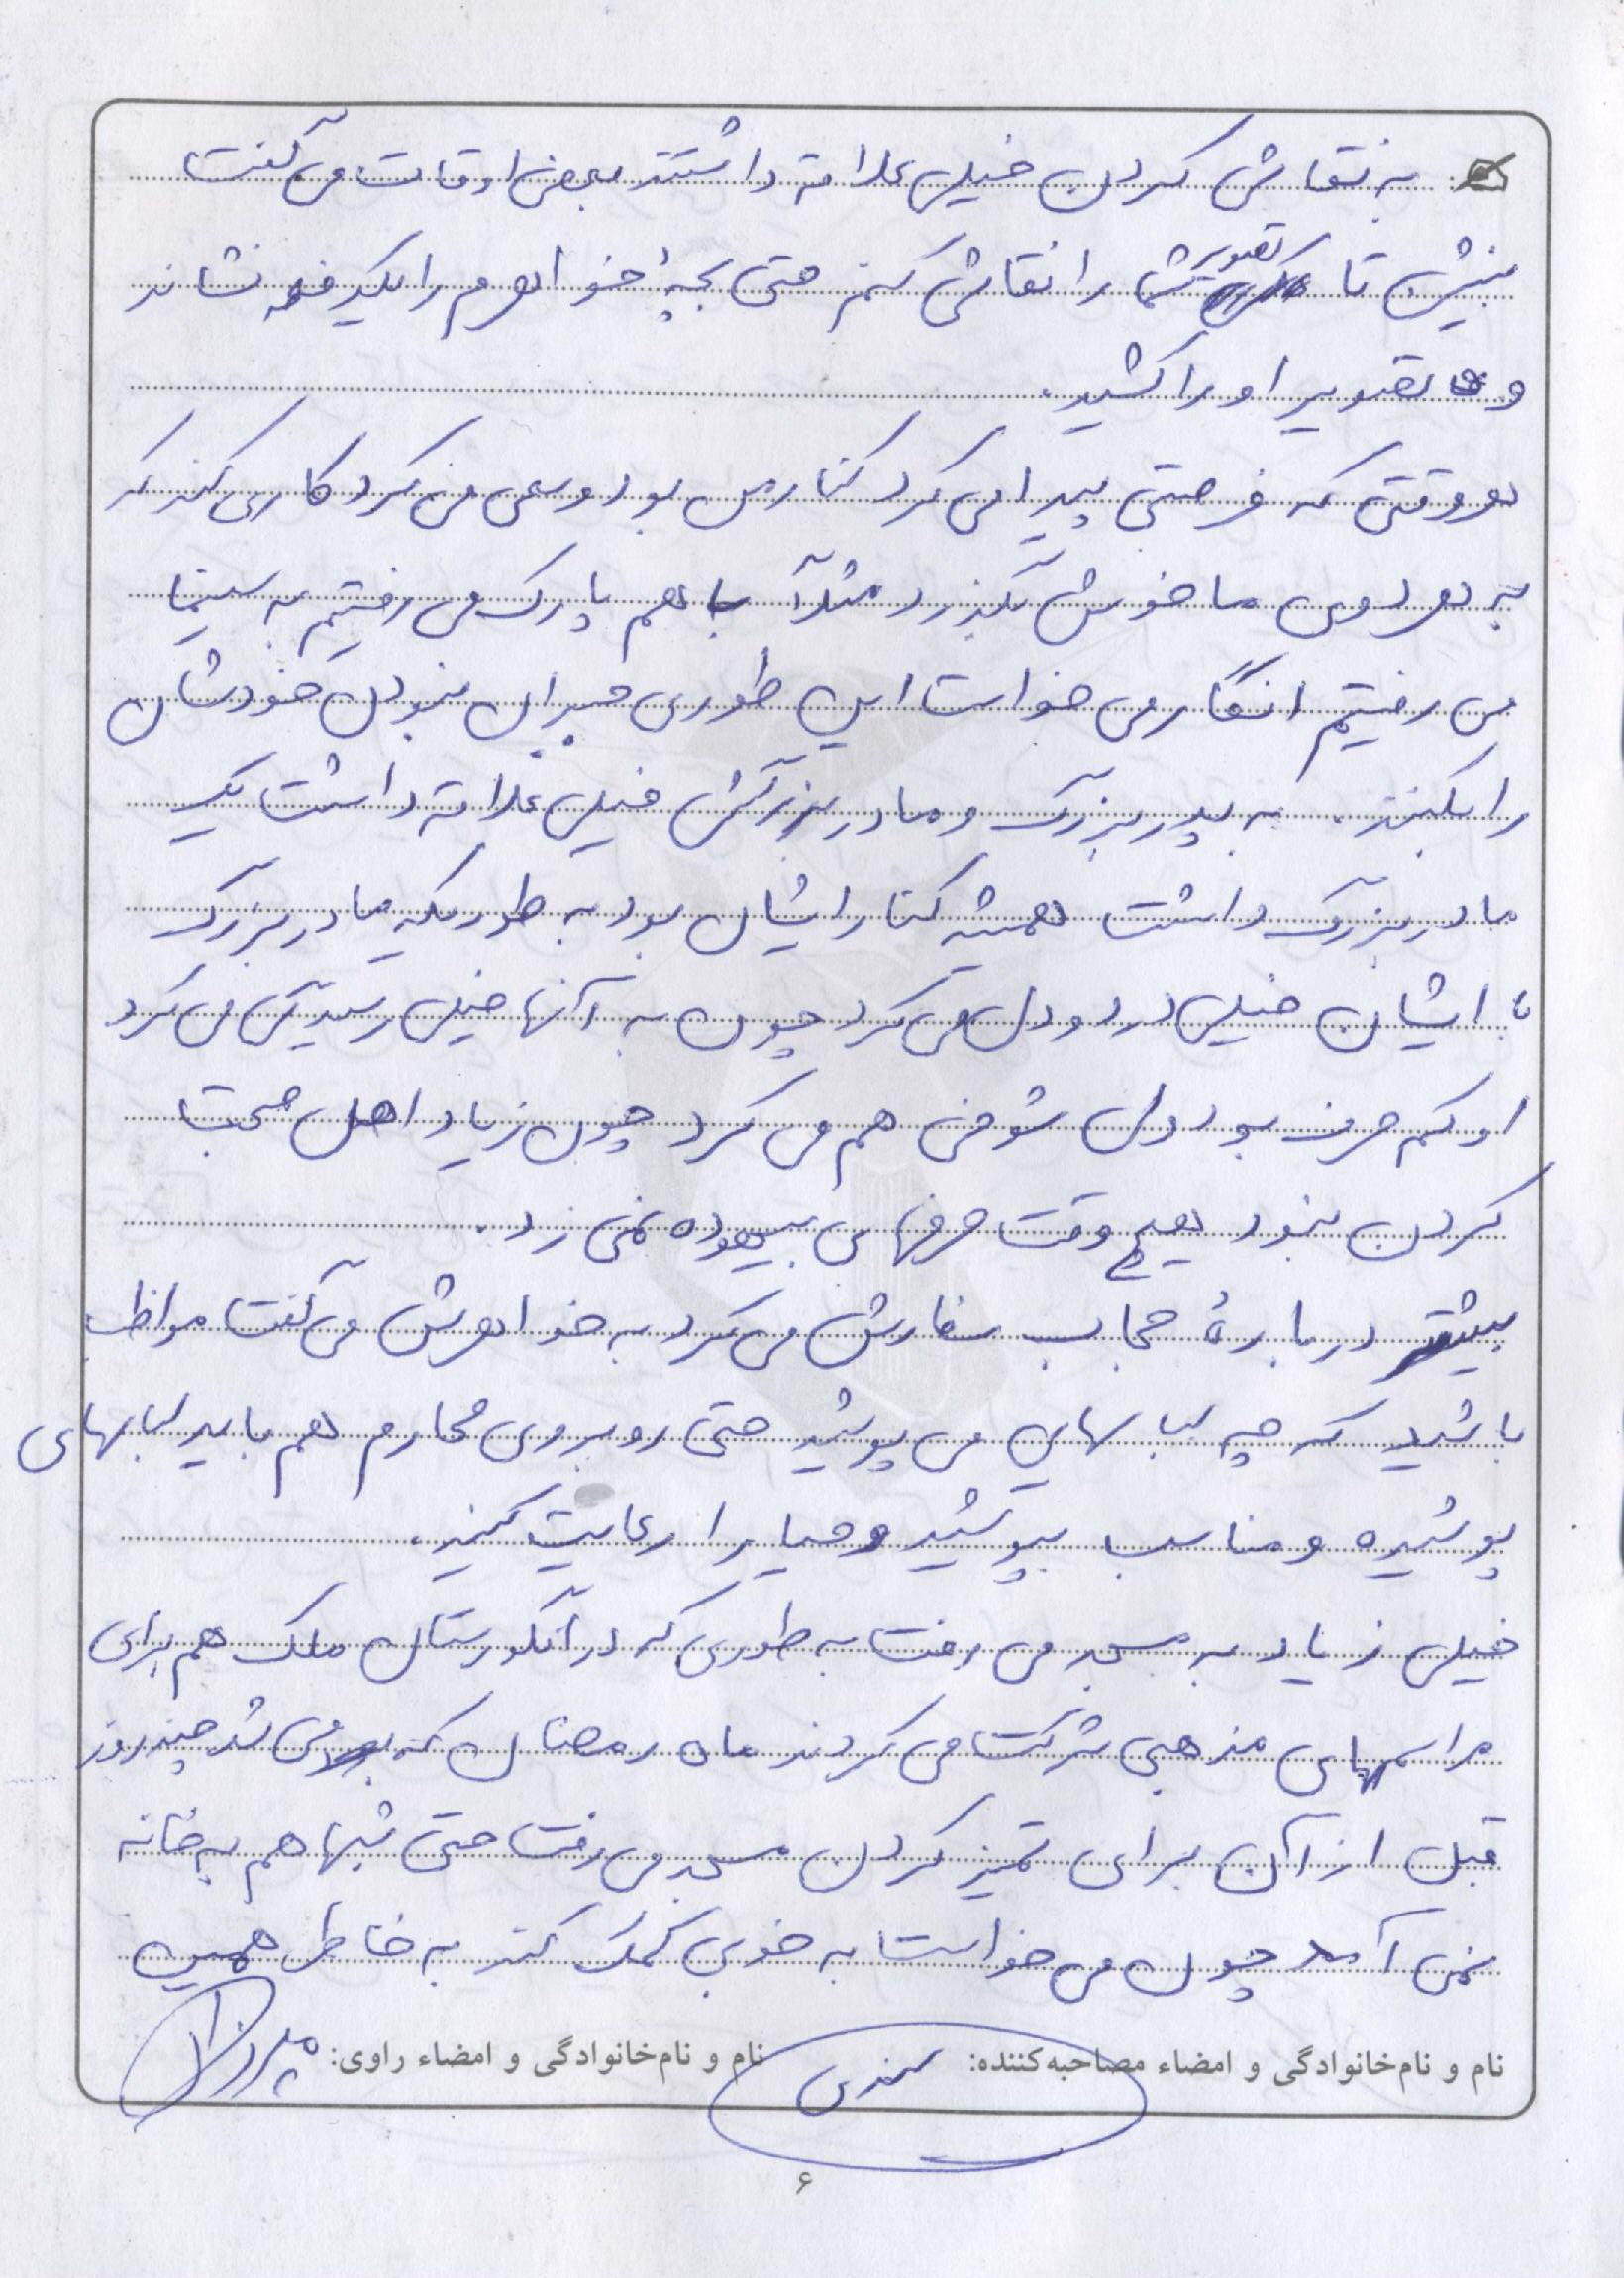 به نقاشی کردن خیلی علاقه داشتند بعضی اوقات می گفت
بنیش تا تصویر شما را نقاشی کنم حتی بچۀ خواهرم را یکدفعه نشاند
و تصویر او را کشید.
هر وقتی که فرصتی پیدا می کرد کنارمن بود و سعی می کرد کاری کند که
به هر دوی ما خوش بگذرد مثلاً با هم پارک می رفتیم به سینما
می رفتیم انگار می خواست این طوری جبران نبودن خودشان
را بکنند. به پدربزرگ و مادربزرگش خیلی علاقه داشت یک
مادربزرگ داشت همیشه کنار ایشان بود به طوریکه مادربزرگ
با ایشان خیلی درد و دل می کرد چون به آنها خیلی رسیدگی می کرد
او کم حرف بود ولی شوخی هم می کرد چون زیاد اهل صحبت
کردن نبود هیچ وقت حرفهای بیهوده نمی زد.
بیشتر دربارۀ حجاب سفارش می کرد به خواهرش می گفت مواظب
باشید که چه لباسهایی می پوشید حتی روبروی محارم هم باید لباسهای
پوشیده و مناسب بپوشید و حیا را رعایت کنید.
خیلی زیاد به مسجد می رفت به طوری که در انگورستان ملک هم برای
مراسمهای مذهبی شرکت می کردند ماه رمضان که می شد چند روز
قبل از آن برای تمیز کردن مسجد می رفت حتی شبها هم به خانه
نمی آمد چون می خواست به خوبی کمک کند به خاطر همین
نام و نام‌خانوادگی و امضاء مصاحبه‌کننده: نام و نام‌خانوادگی و امضاء راوی:
۶